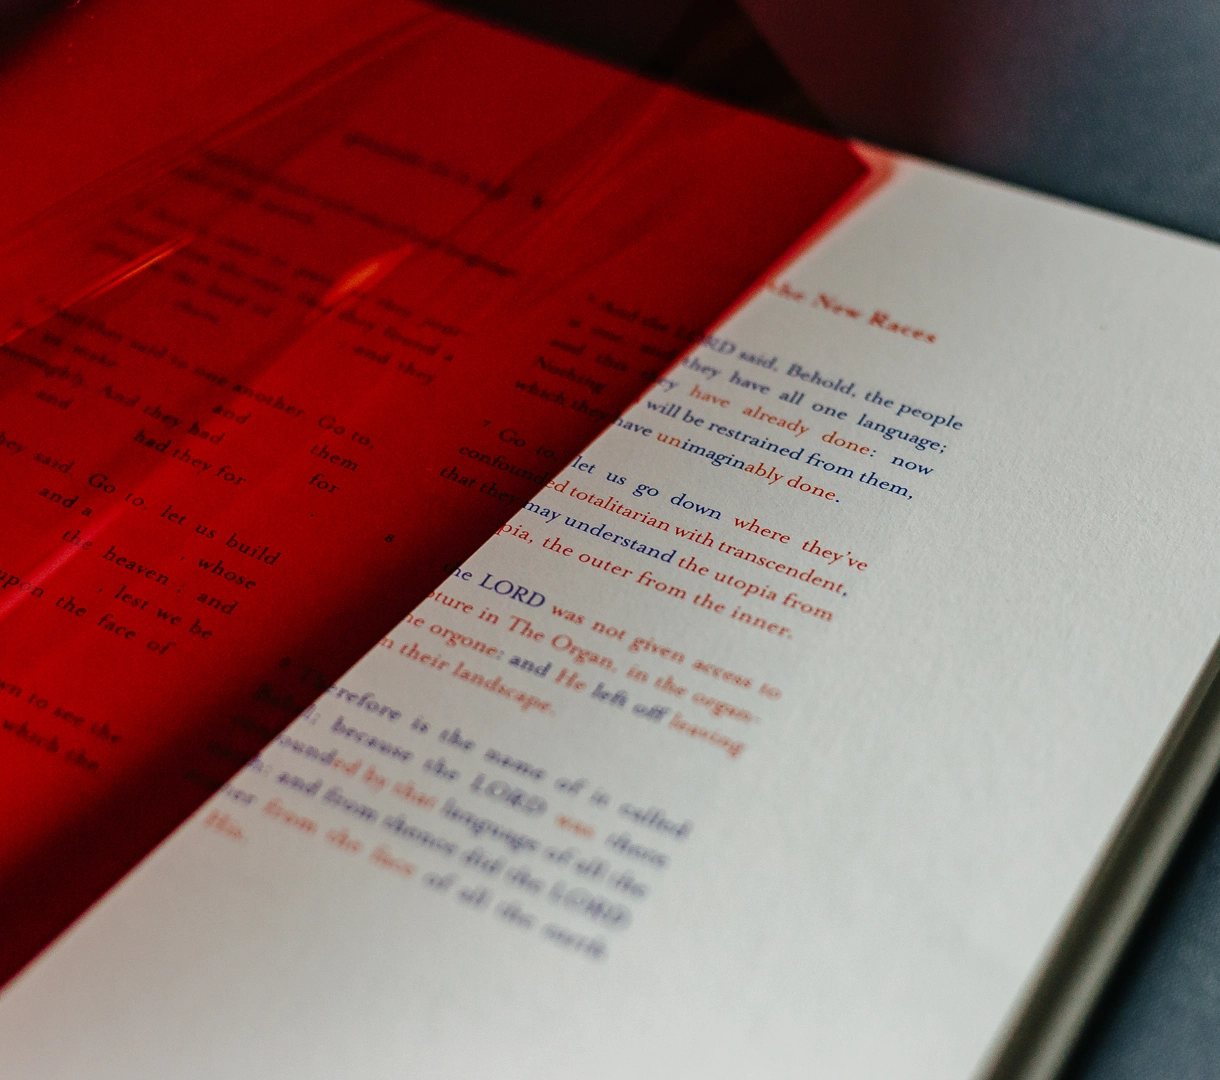 The New Races
RD said, Behold, the people
they have all one language;
have already done: now
will be restrained from them,
have unimaginably done.
let us go down where they've
ed totalitarian with transcendent,
may understand the utopia from
pia, the outer from the inner.
the LORD was not given access to
pture in The Organ, in the organ-
he orgone: and He left off leaving
n their landscape.
erefore is the name of it called
because the LORD was there
ounded by that language of all the
and from thence did the LORD
from the face of all the earth
language
they found a
and they
And they said to one another, Go to,
make
And they had and them
and had they for for
they said, Go to, let us build
and a whose
the heaven; and
lest we be
upon the face of
wn to see the
which the
And the LORD
is one, and
and this
Nothing
which they
7 Go to,
confound
that they
8